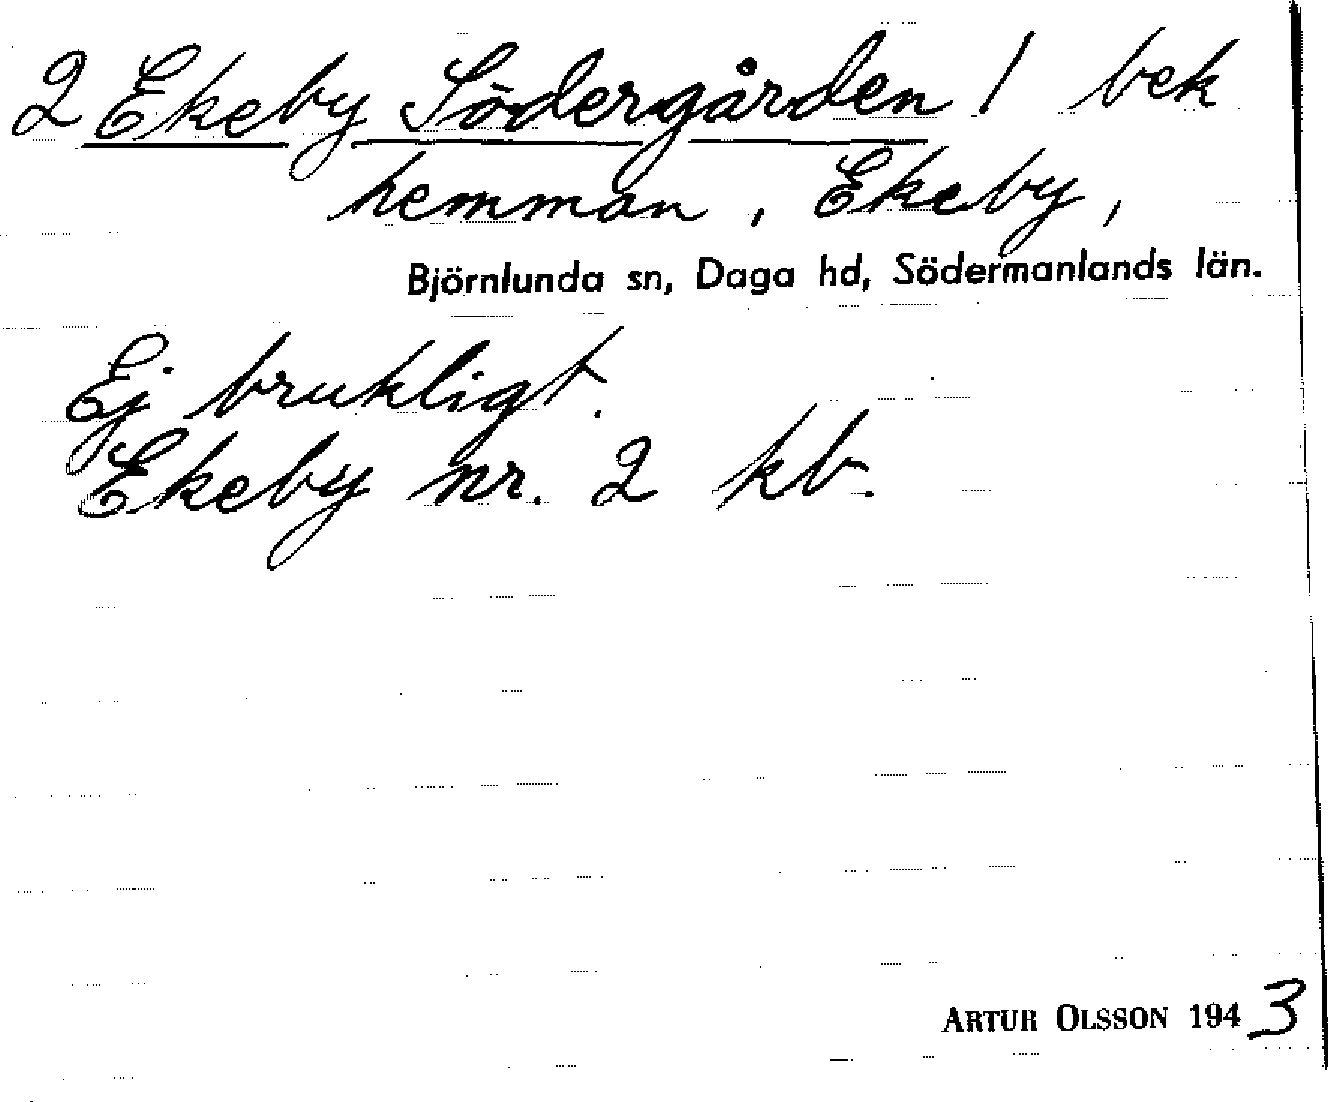 2 Ekeby Södergården 1 bek
hemman, Ekeby,
Björnlunda sn, Daga hd, Södermanlands län.
Ej brukligt.
Ekeby nr. 2 kb.
ARTUR OLSSON 1943